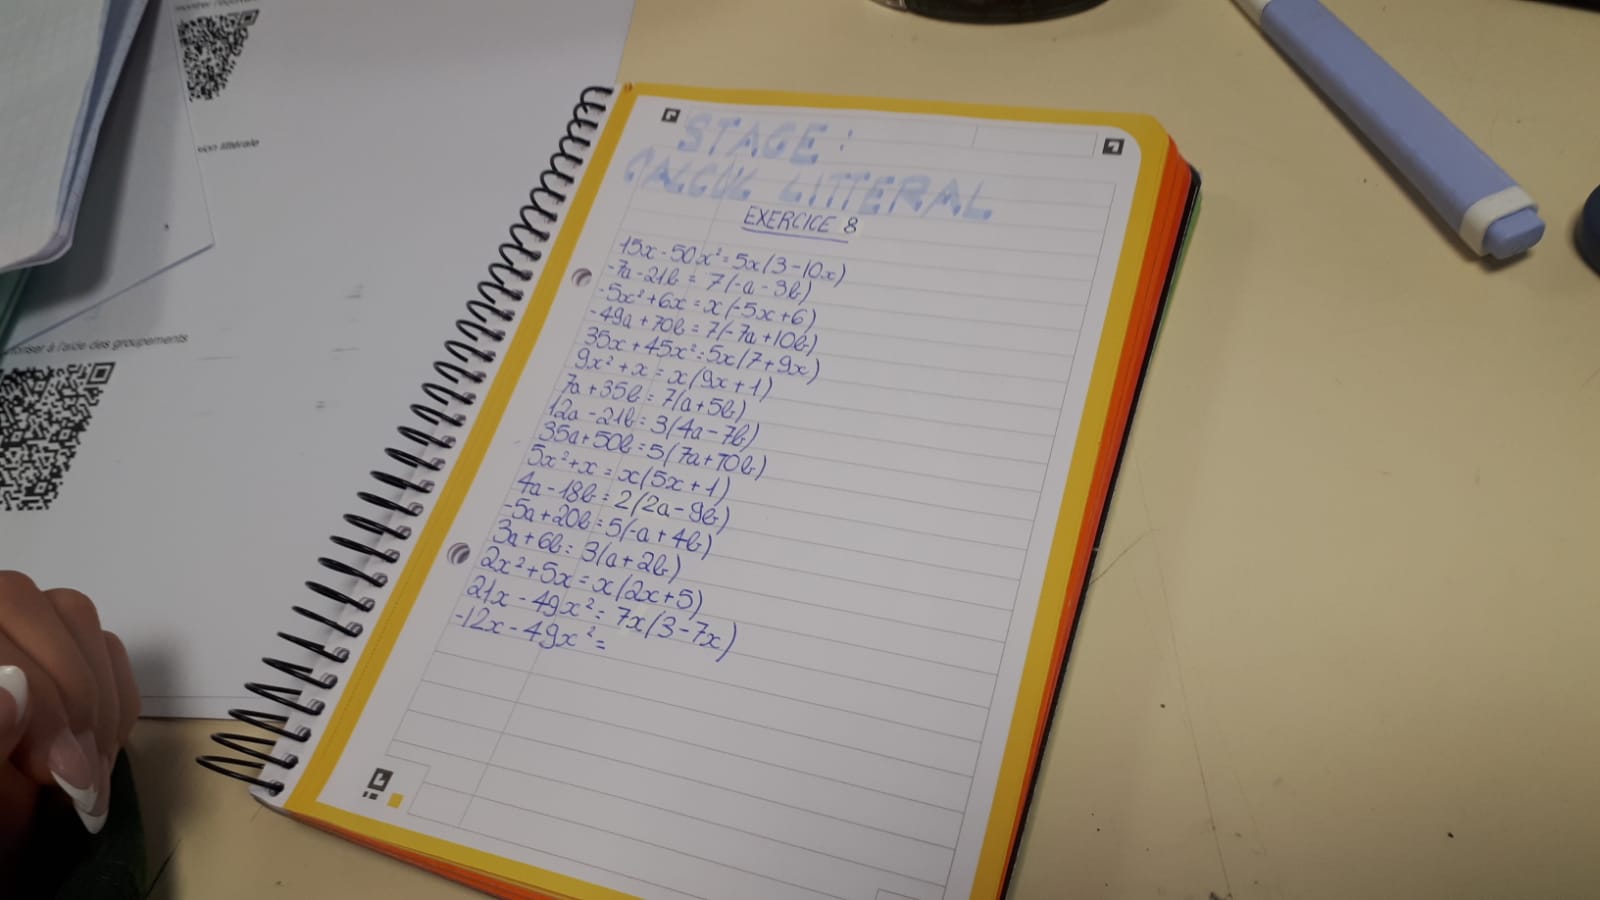 montrer l'équival
sion littérale
toriser à l'aide des groupements
STAGE :
CALCUL LITTERAL
EXERCICE 8
15x - 50x² = 5x(3 - 10x)
-7a - 21b = 7(-a - 3b)
-5x² + 6x = x(-5x + 6)
-49a + 70b = 7(-7a + 10b)
35x + 45x² = 5x(7 + 9x)
9x² + x = x(9x + 1)
7a + 35b = 7(a + 5b)
12a - 21b = 3(4a - 7b)
35a + 50b = 5(7a + 10b)
5x² + x = x(5x + 1)
4a - 18b = 2(2a - 9b)
-5a + 20b = 5(-a + 4b)
3a + 6b = 3(a + 2b)
2x² + 5x = x(2x + 5)
21x - 49x² = 7x(3 - 7x)
-12x - 49x² =